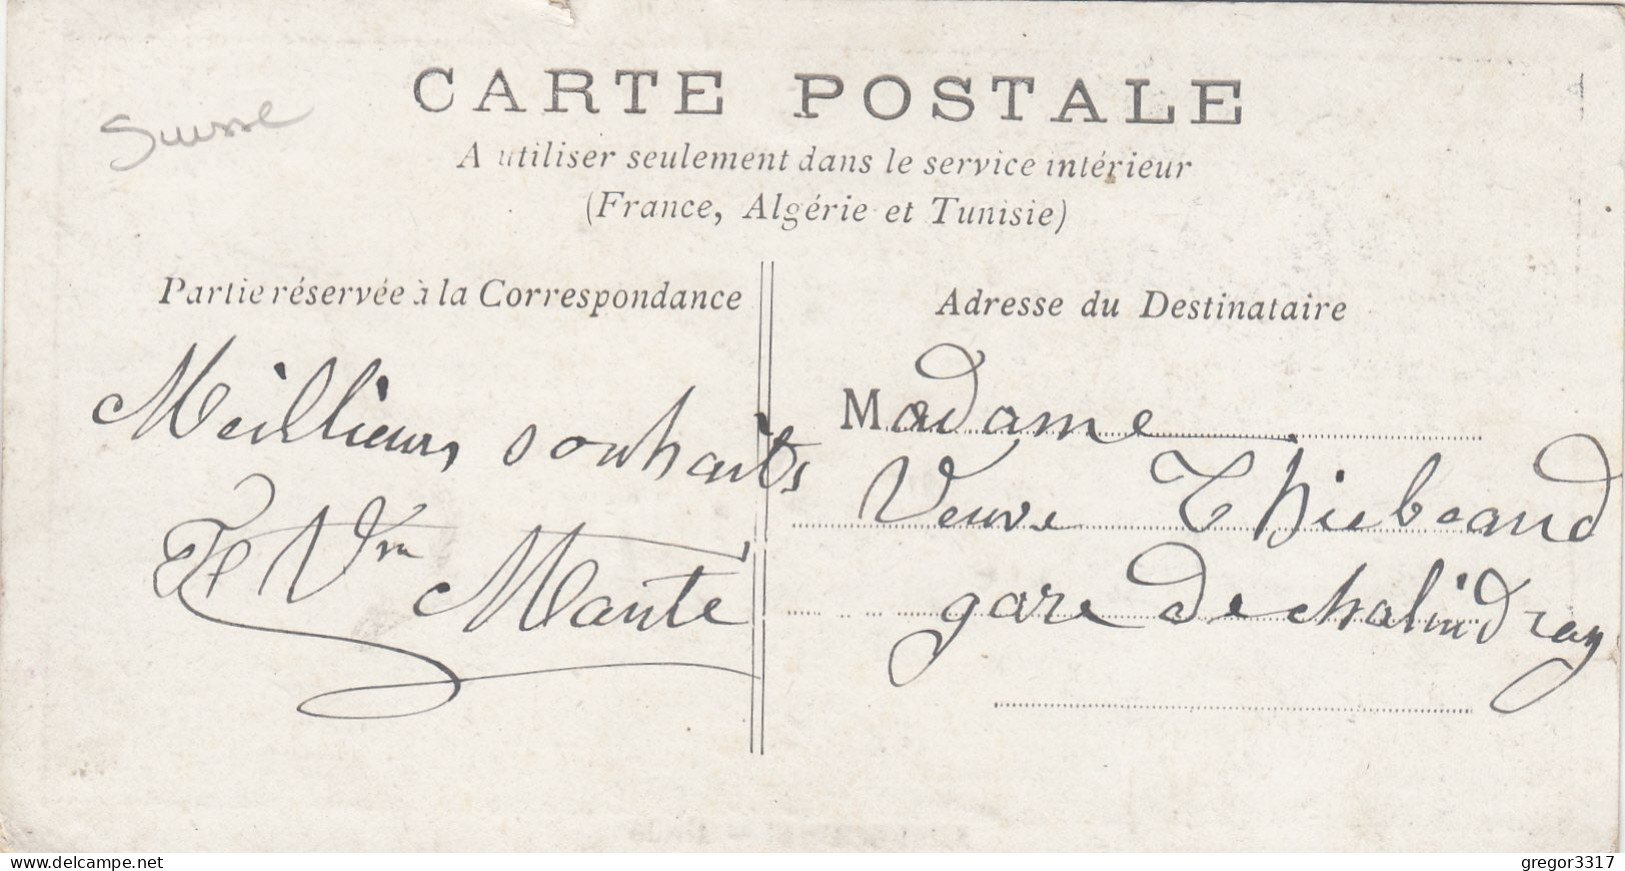 Suisse
CARTE POSTALE
A utiliser seulement dans le service intérieur
(France, Algérie et Tunisie)
Partie réservée à la Correspondance
Meilleurs souhaits
Mante
Adresse du Destinataire
Madame
Veuve Thiebeaud
gare de chalindray
www.delcampe.net
gregor3317